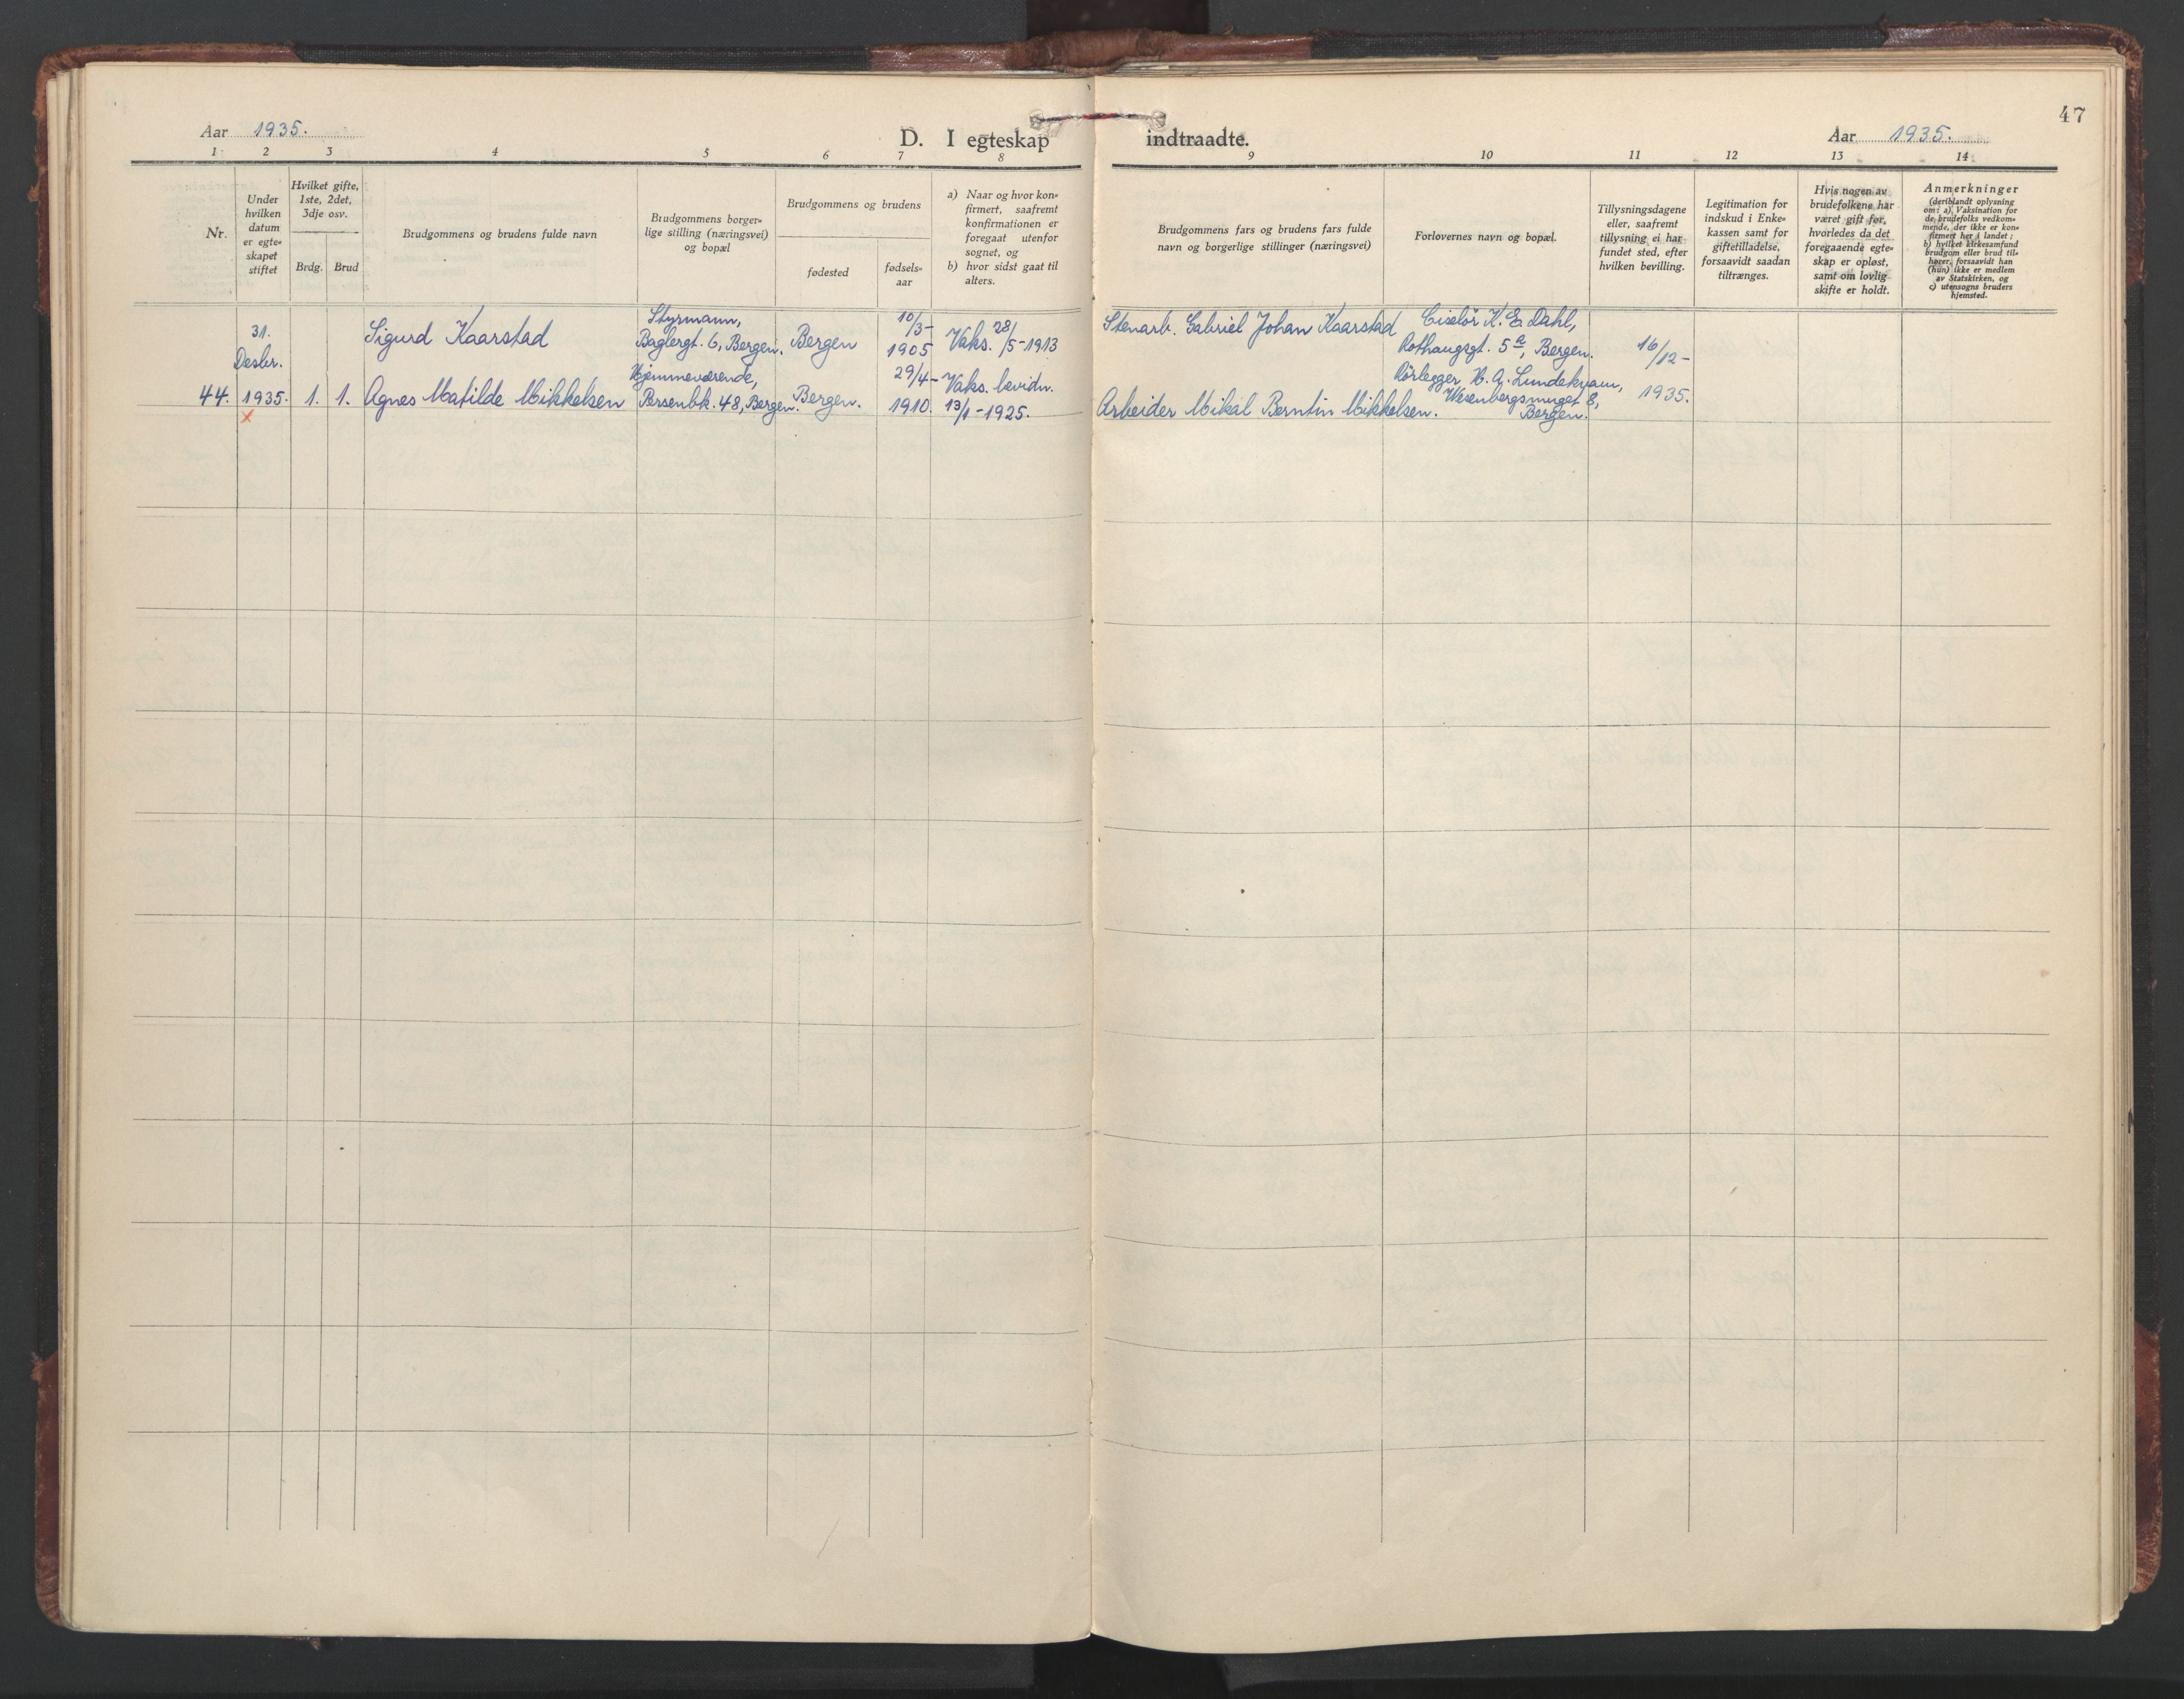 47
Aar 1935.
D. I egteskap indtraadte.
Aar 1935.
1 2 3 4 5 6 7 8 9 10 11 12 13 14
Nr.
Under
hvilken
datum
er egte-
skapet
stiftet
Hvilket gifte,
1ste, 2det,
3dje osv.
Brdg. Brud
Brudgommens og brudens fulde navn
Brudgommens borger-
lige stilling (næringsvei)
og bopæl
Brudgommens og brudens
fødested
fødsels-
aar
a) Naar og hvor kon-
firmert, saafremt
konfirmationen er
foregaat utenfor
sognet, og
b) hvor sidst gaat til
alters.
Brudgommens fars og brudens fars fulde
navn og borgerlige stillinger (næringsvei)
Forlovernes navn og bopæl.
Tillysningsdagene
eller, saafremt
tillysning ei har
fundet sted, efter
hvilken bevilling.
Legitimation for
indskud i Enke-
kassen samt for
giftetilladelse,
forsaavidt saadan
tiltrænges.
Hvis nogen av
brudefolkene har
været gift før,
hvorledes da det
foregaaende egte-
skap er opløst,
samt om lovlig
skifte er holdt.
Anmerkninger
(deriblandt oplysning
om: a) Vaksination for
de brudefolks vedkom-
mende, der ikke er kon-
firmert her i landet;
b) hvilket kirkesamfund
brudgom eller brud til-
hører, forsaavidt han
(hun) ikke er medlem
av Statskirken, og
c) utensogns bruders
hjemsted.
44.
31.
Desbr.
1935.
x
1. 1.
Sigurd Kaarstad
Agnes Matilde Mikkelsen
Styrmann,
Baglergt. 6, Bergen.
Hjemmeværende,
Persenbk. 48, Bergen.
Bergen
Bergen.
10/3-
1905
29/4-
1910.
Vaks. 28/5-1913
Vaks. bevidn.
13/1-1925.
Stenarb. Gabriel Johan Kaarstad
Arbeider Mikal Berntin Mikkelsen.
Ciselør K. E. Dahl,
Rothaugsgt. 5a, Bergen.
Rørlegger H. A. Lundekvam,
Wesenbergsmuget 8,
Bergen.
16/12-
1935.